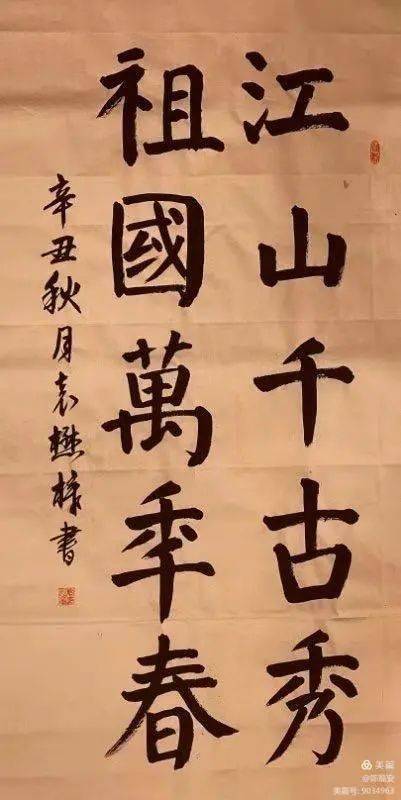 江山千古秀
祖國萬年春
辛丑秋月袁懋樑書
美篇
美篇号: 9034963